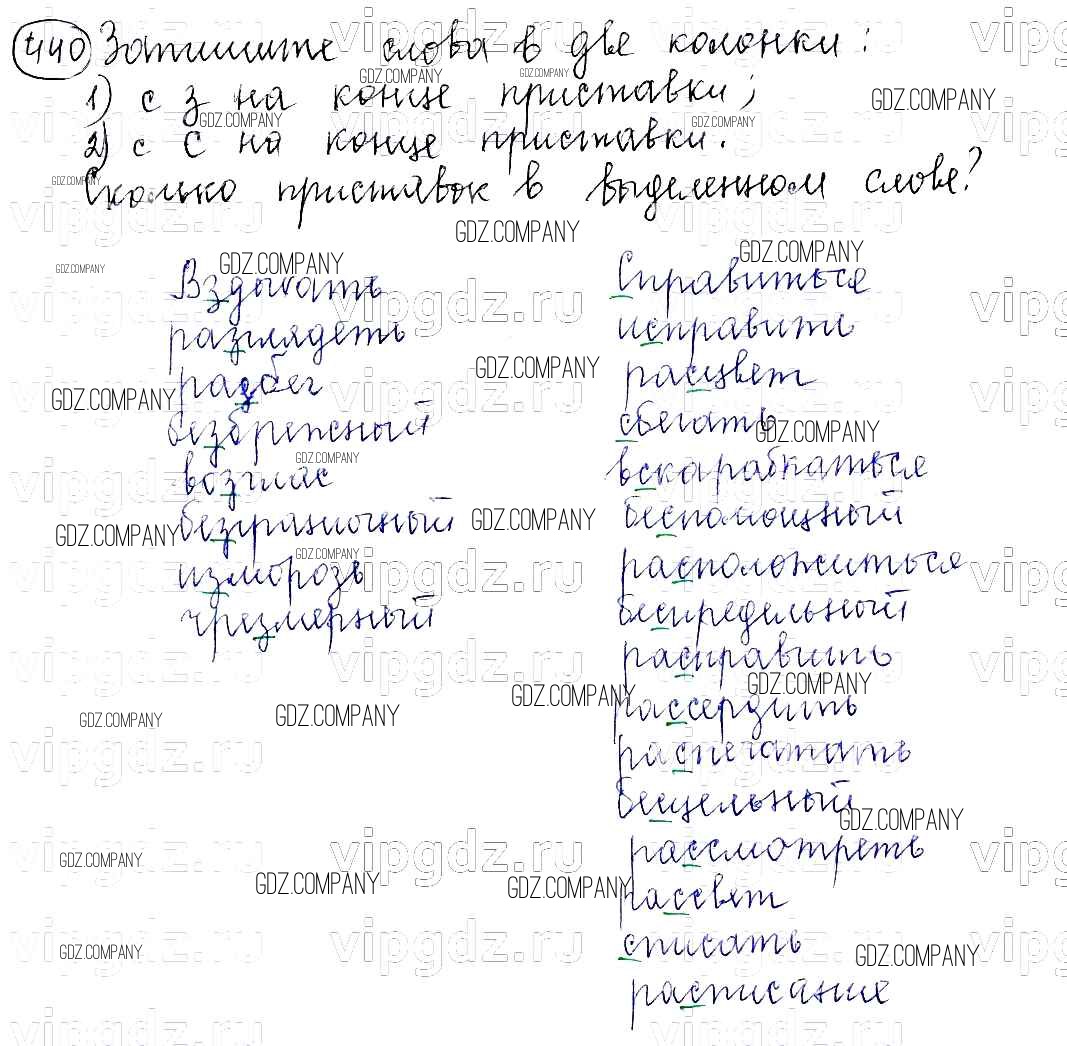 440 Запишите слова в две колонки:
1) с з на конце приставки;
2) с С на конце приставки.
Сколько приставок в выделенном слове?
Вздыхать
разглядеть
разбег
безбрежный
возглас
безграмотный
изморозь
чрезмерный
Справиться
исправить
расцвет
сбегать
вскарабкаться
беспомощный
расположиться
беспредельный
расправить
рассердить
распечатать
бесцельный
рассмотреть
рассвет
списать
расписание
vipgdz.ru
GDZ.COMPANY